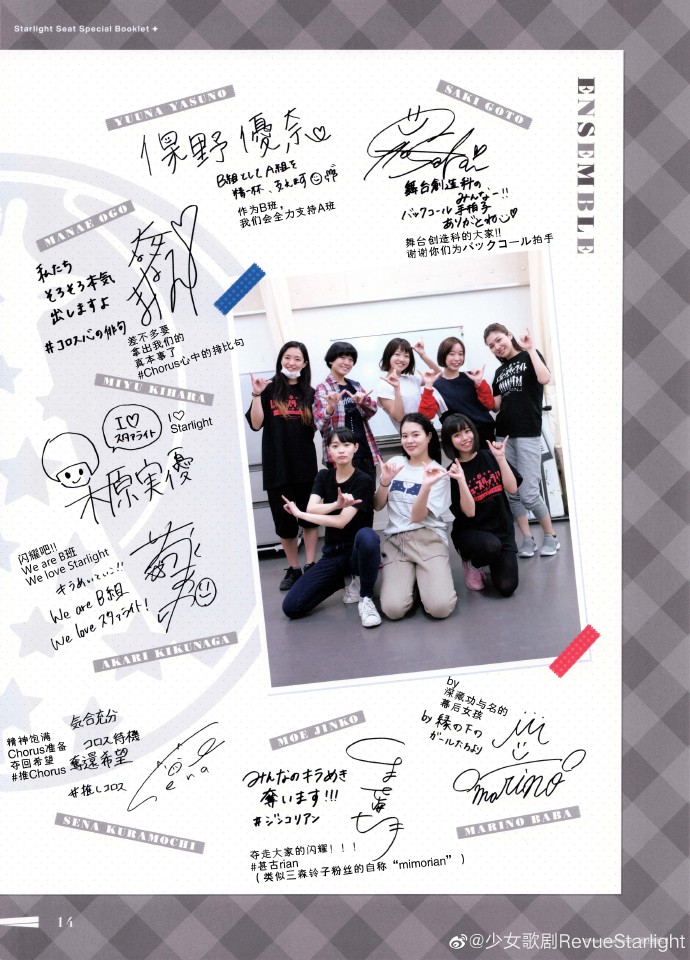 Starlight Seat Special Booklet ✦
ENSEMBLE
YUUNA YASUNO
保野優奈♡
B組としてA組を
精一杯、支えます
作为B班，
我们会全力支持A班
SAKI GOTO
舞台創造科の
みんなー!!
バックコール手拍子
ありがとね
舞台创造科的大家!!
谢谢你们为バックコール拍手
MANAE OGO
私たち
そろそろ本気
出しますよ
#コロスバの俳句
差不多要
拿出我们的
真本事了
#Chorus心中的排比句
MIYU KIHARA
I♡
スタァライト
I♡
Starlight
木原実優
闪耀吧!!
We are B班
We love Starlight
キラめいてぃこ!!
We are B組
We love スタァライト!
AKARI KIKUNAGA
気合充分
コロス待機
奪還希望
#推しコロス
精神饱满
Chorus准备
夺回希望
#推Chorus
Sena
SENA KURAMOCHI
MOE JINKO
みんなのキラめき
奪います!!!
#ジンコリアン
夺走大家的闪耀！！！
#甚古rian
（类似三森铃子粉丝的自称“mimorian”）
by
深藏功与名的
幕后女孩
by 縁の下の
ガールたちより
marino
MARINO BABA
14
@少女歌剧RevueStarlight